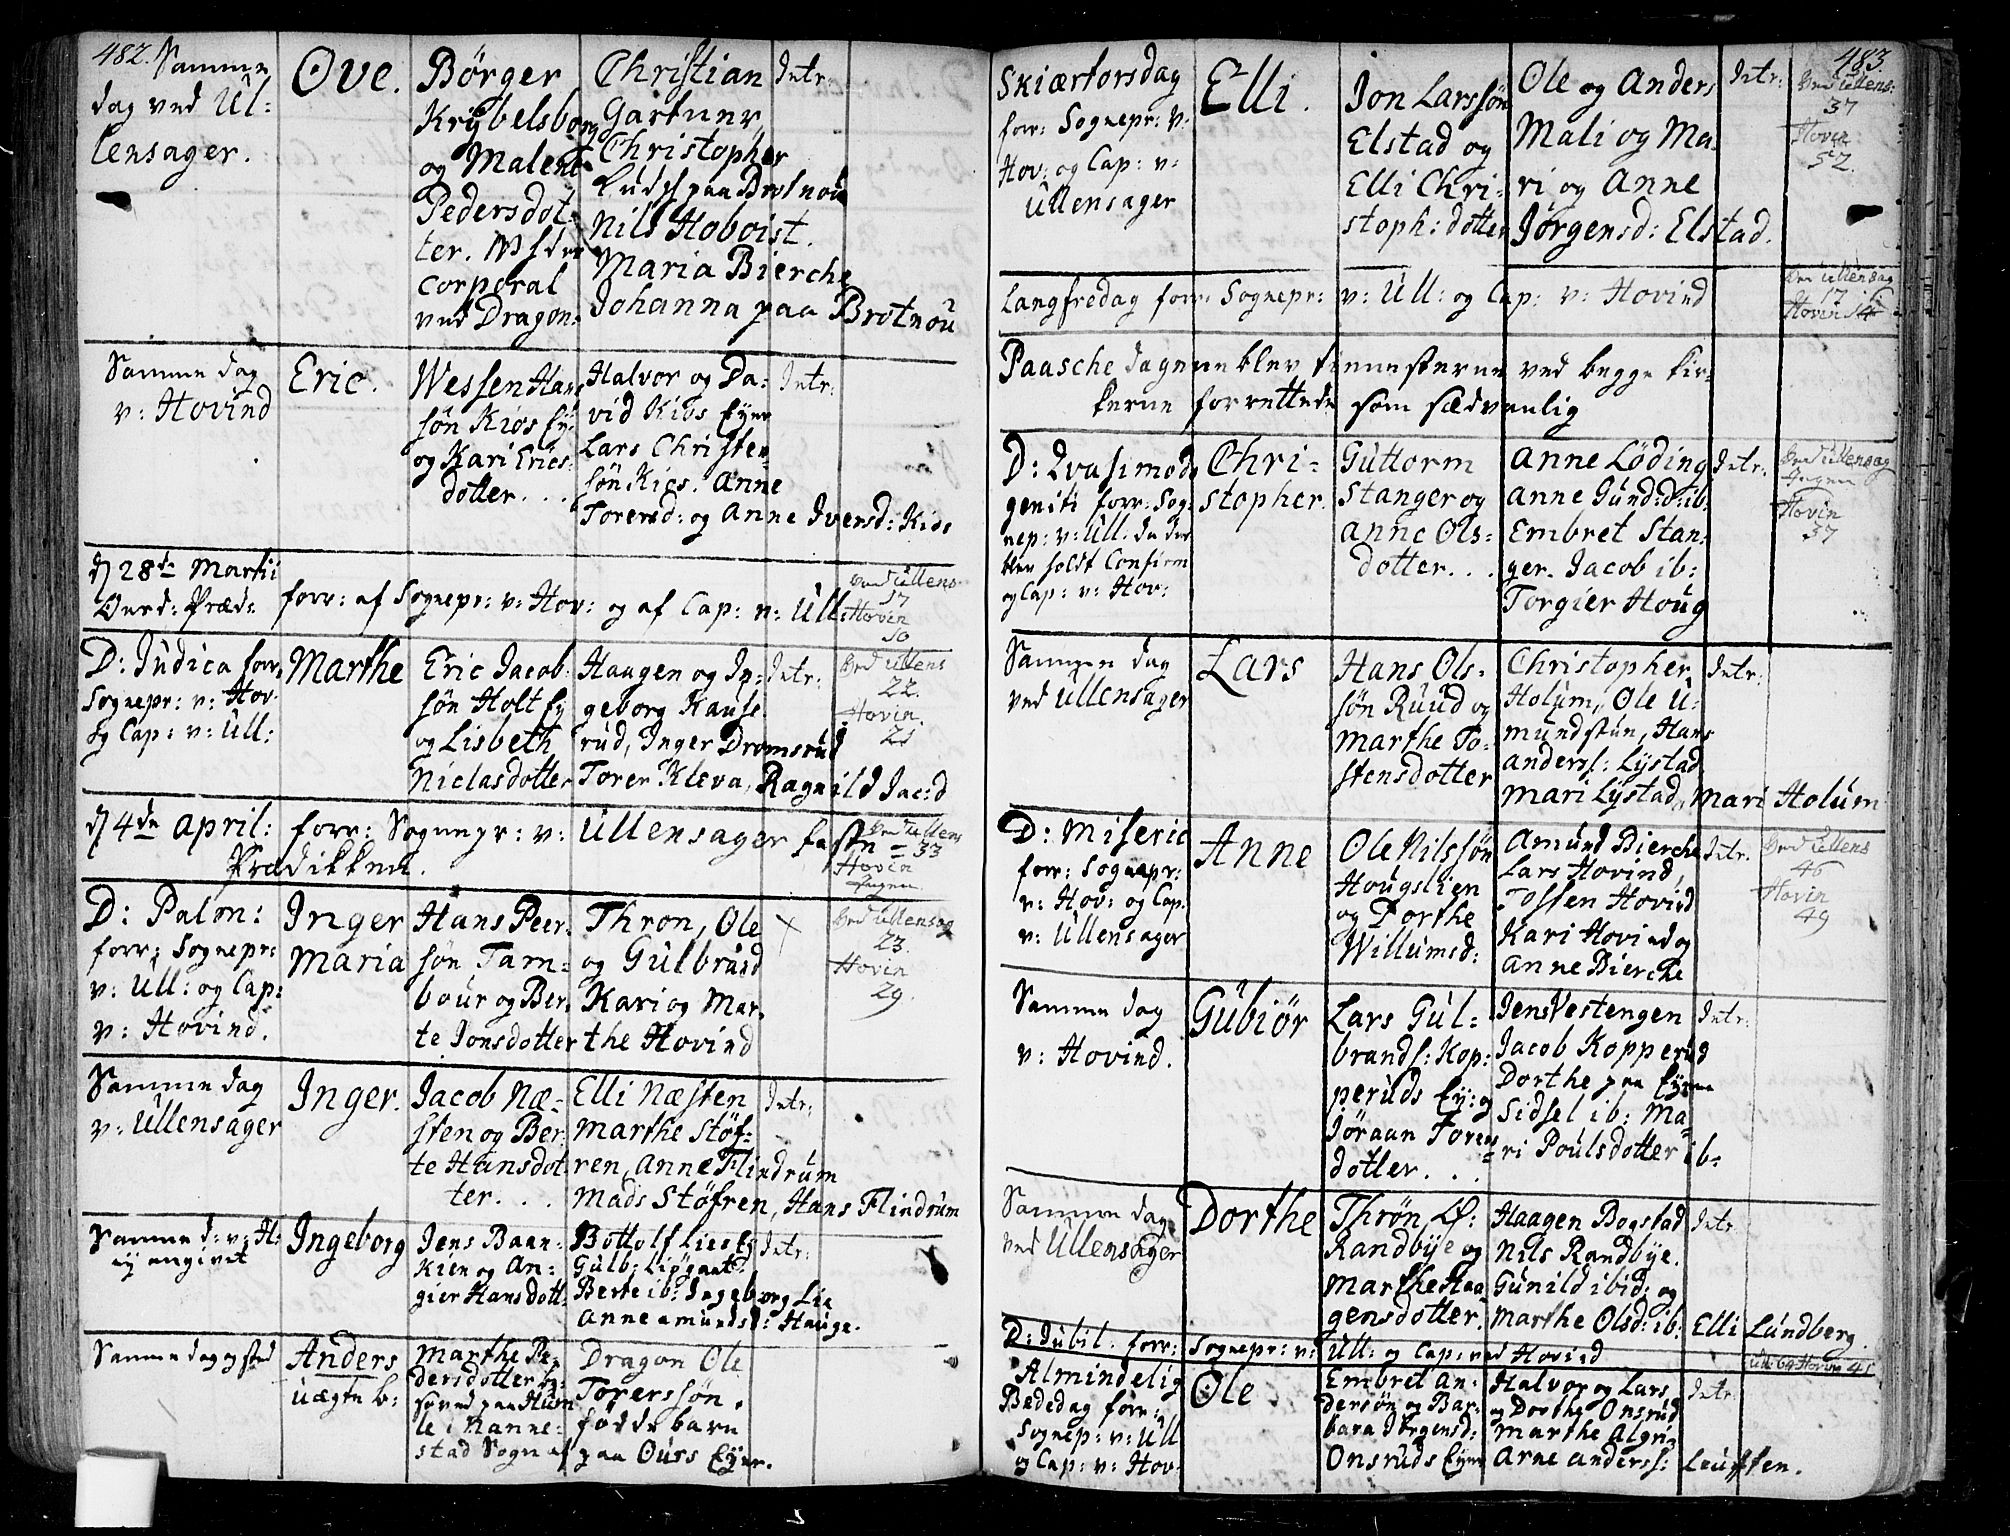 482. Samme
dag ved Ul-
lensager.
Ove.
Börger
Krybelsborg
og Malene
Pedersdot-
ter.
Corporal
ved Dragon:
Christian
Gartner
Christopher
paa Brotnou
Nils Hoboist.
Maria Bierche
Johanna paa Brotnou
Intr:
Samme dag
v: Hovind
Eric.
Wessen Han-
søn Kiøs Ey:
og Kari Erics-
dotter...
Halvor og Da-
vid Kiøs Eyer
Lars Christen-
søn Kios. Anne
Torersd: og Anne Iversd: Kiøs
Intr:
28de Martii
Onsd: Præd:
forr: af Sognepr: v: Hov: og af Cap: v: Ull:
Ved Ullens
17
Hovin
10
D: Judica forr:
Sognepr: v: Hov
og Cap: v: Ull:
Marthe
Eric Jacob-
søn Holt Ey
og Lisbeth
Niclasdotter
Haagen og In-
geborg Kause-
rud, Inger Dromsrud
Torer Kleva, Ragnild Jac:d
Intr:
Ved Ullens
22.
Hovin.
21
4de April: forr: Sognepr: v: Ullensager faste
Prædikken.
Ved Ullens
33
Hovin
Ingen
D: Palm:
forr: Sognepr:
v: Ull: og Cap:
v: Hovind.
Inger
Maria
Hans Peer-
søn Tam-
bour og Ber-
te Jonsdotter
Thron, Ole
og Gulbrand
Kari og Mar-
the Hovind
X
Ved Ullensag
23.
Hovin
29.
Samme dag
v: Ullensager
Inger.
Jacob Næ-
sten og Ber-
te Hansdot-
ter...
Elli Næsten
Marthe Støf-
ren, Anne Flindrum
Mads Støfren, Hans Flindrum
Intr:
Samme d: v: H:
ey angivet
Ingeborg
Jens Baan-
kien og An-
gier Hansdott:
Bottolf Lie
Gulb:
Berte ib: Ingeborg Lie
Anne Amundsd: Hauge.
Intr:
Samme dag og sted
Anders
Uægte b:
Marthe Pe-
dersdotter
paa Hum
le i Nanne-
stad Sogn af
Dragon Ole
Torerssøn.
fødde barn
paa Ouss Eyer.
483.
Skiærtorsdag
forr: Sognepr: v:
Hov: og Cap: v:
Ullensager
Elli.
Jon Larssøn
Elstad og
Elli Chri-
stoph: dotter
Ole og Anders
Mali og Ma-
ri og Anne
Jørgensd: Elstad.
Intr:
Ved Ullens:
37
Hovin
52.
Langfredag forr: Sognepr: v: Ull: og Cap: v: Hovind
Ved Ullensag
17
Hovin
Paasche dagene blev tienesterne ved begge Kir-
kerne forrettede som sædvanlig
D: Qvasimodo
geniti forr: Sog-
nep: v: Ull. da der
blev holdt Confirm
og Cap: v: Hov:
Chri-
stopher.
Guttorm
Stanger og
Anne Ols-
dotter...
Anne Löding
Anne Gund:d: ib:
Embret Stan-
ger. Jacob ib:
Torgier Houg
Intr:
Ved Ullensag
Ingen
Hovin
37
Samme dag
ved Ullensager
Lars
Hans Ols-
søn Ruud og
Marthe To-
stensdotter
Christopher
Holum, Ole U-
mundstun, Hans
Anderss: Lystad
Mari Lystad, Mari Holum
Intr:
D: Miseric
forr: Sognepr:
v: Hov: og Cap.
v: Ullensager
Anne
Ole Nilssøn
Hougslien
og Dorthe
Willumsd:
Amund Bierche
Lars Hovind,
Tosten Hovind
Kari Hovind og
Anne Bierche
Intr:
Ved Ullens
46
Hovin
49
Samme dag
v: Hovind.
Gubiør
Lars Gul-
brands: Kop-
peruds Ey: og
Jöraan Torers
dotter...
Jens Vestengen
Jacob Kopperud
Dorthe paa Eyene
Sidsel ib: Ma-
ri Poulsdotter ib:
Intr:
Samme dag
ved Ullensager
Dorthe
Thrøn
Randbye og
Marthe Haa
gensdotter.
Haagen Bogstad
Nils Randbye.
Gunild ibid: og
Marthe Olsd: ib: Elli Lundberg.
Intr:
D: Jubil: forr: Sognepr: v: Ull: og Cap: ved Hovind
Ull: 69 Hovin 41
Almindelig
Bededag forr:
Sognep: v: Ull
og Cap: v: Hov:
Ole
Embret An-
dersøn og Bar-
bara Jörgensd:
Onsruds Eyer
Halvor og Lars
og Dorthe Onsrud
Marthe Algri-
Arne Anderss: Leuften.
Intr: